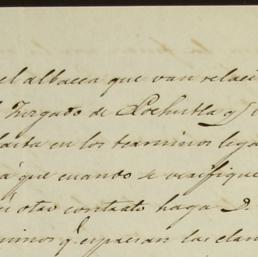 el albacea que van relaci
Juzgado de Pochutla y
en los terminos lega
que cuando se verifique
otro contrato haga D.
minos q. espresan las clau